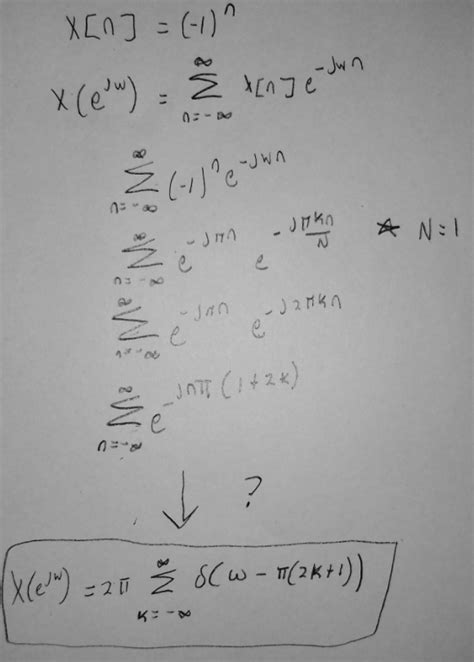 x[n] = (-1)^n
X(e^{jw}) = ∑_{n=-∞}^{∞} x[n] e^{-jwn}
∑_{n=-∞}^{∞} (-1)^n e^{-jwn}
∑_{n=-∞}^{∞} e^{-jπn} e^{-jπkn/N} ☆ N=1
∑_{n=-∞}^{∞} e^{-jπn} e^{-j2πkn}
∑_{n=-∞}^{∞} e^{-jnπ(1+2k)}
↓ ?
X(e^{jw}) = 2π ∑_{k=-∞}^{∞} δ(ω - π(2k+1))